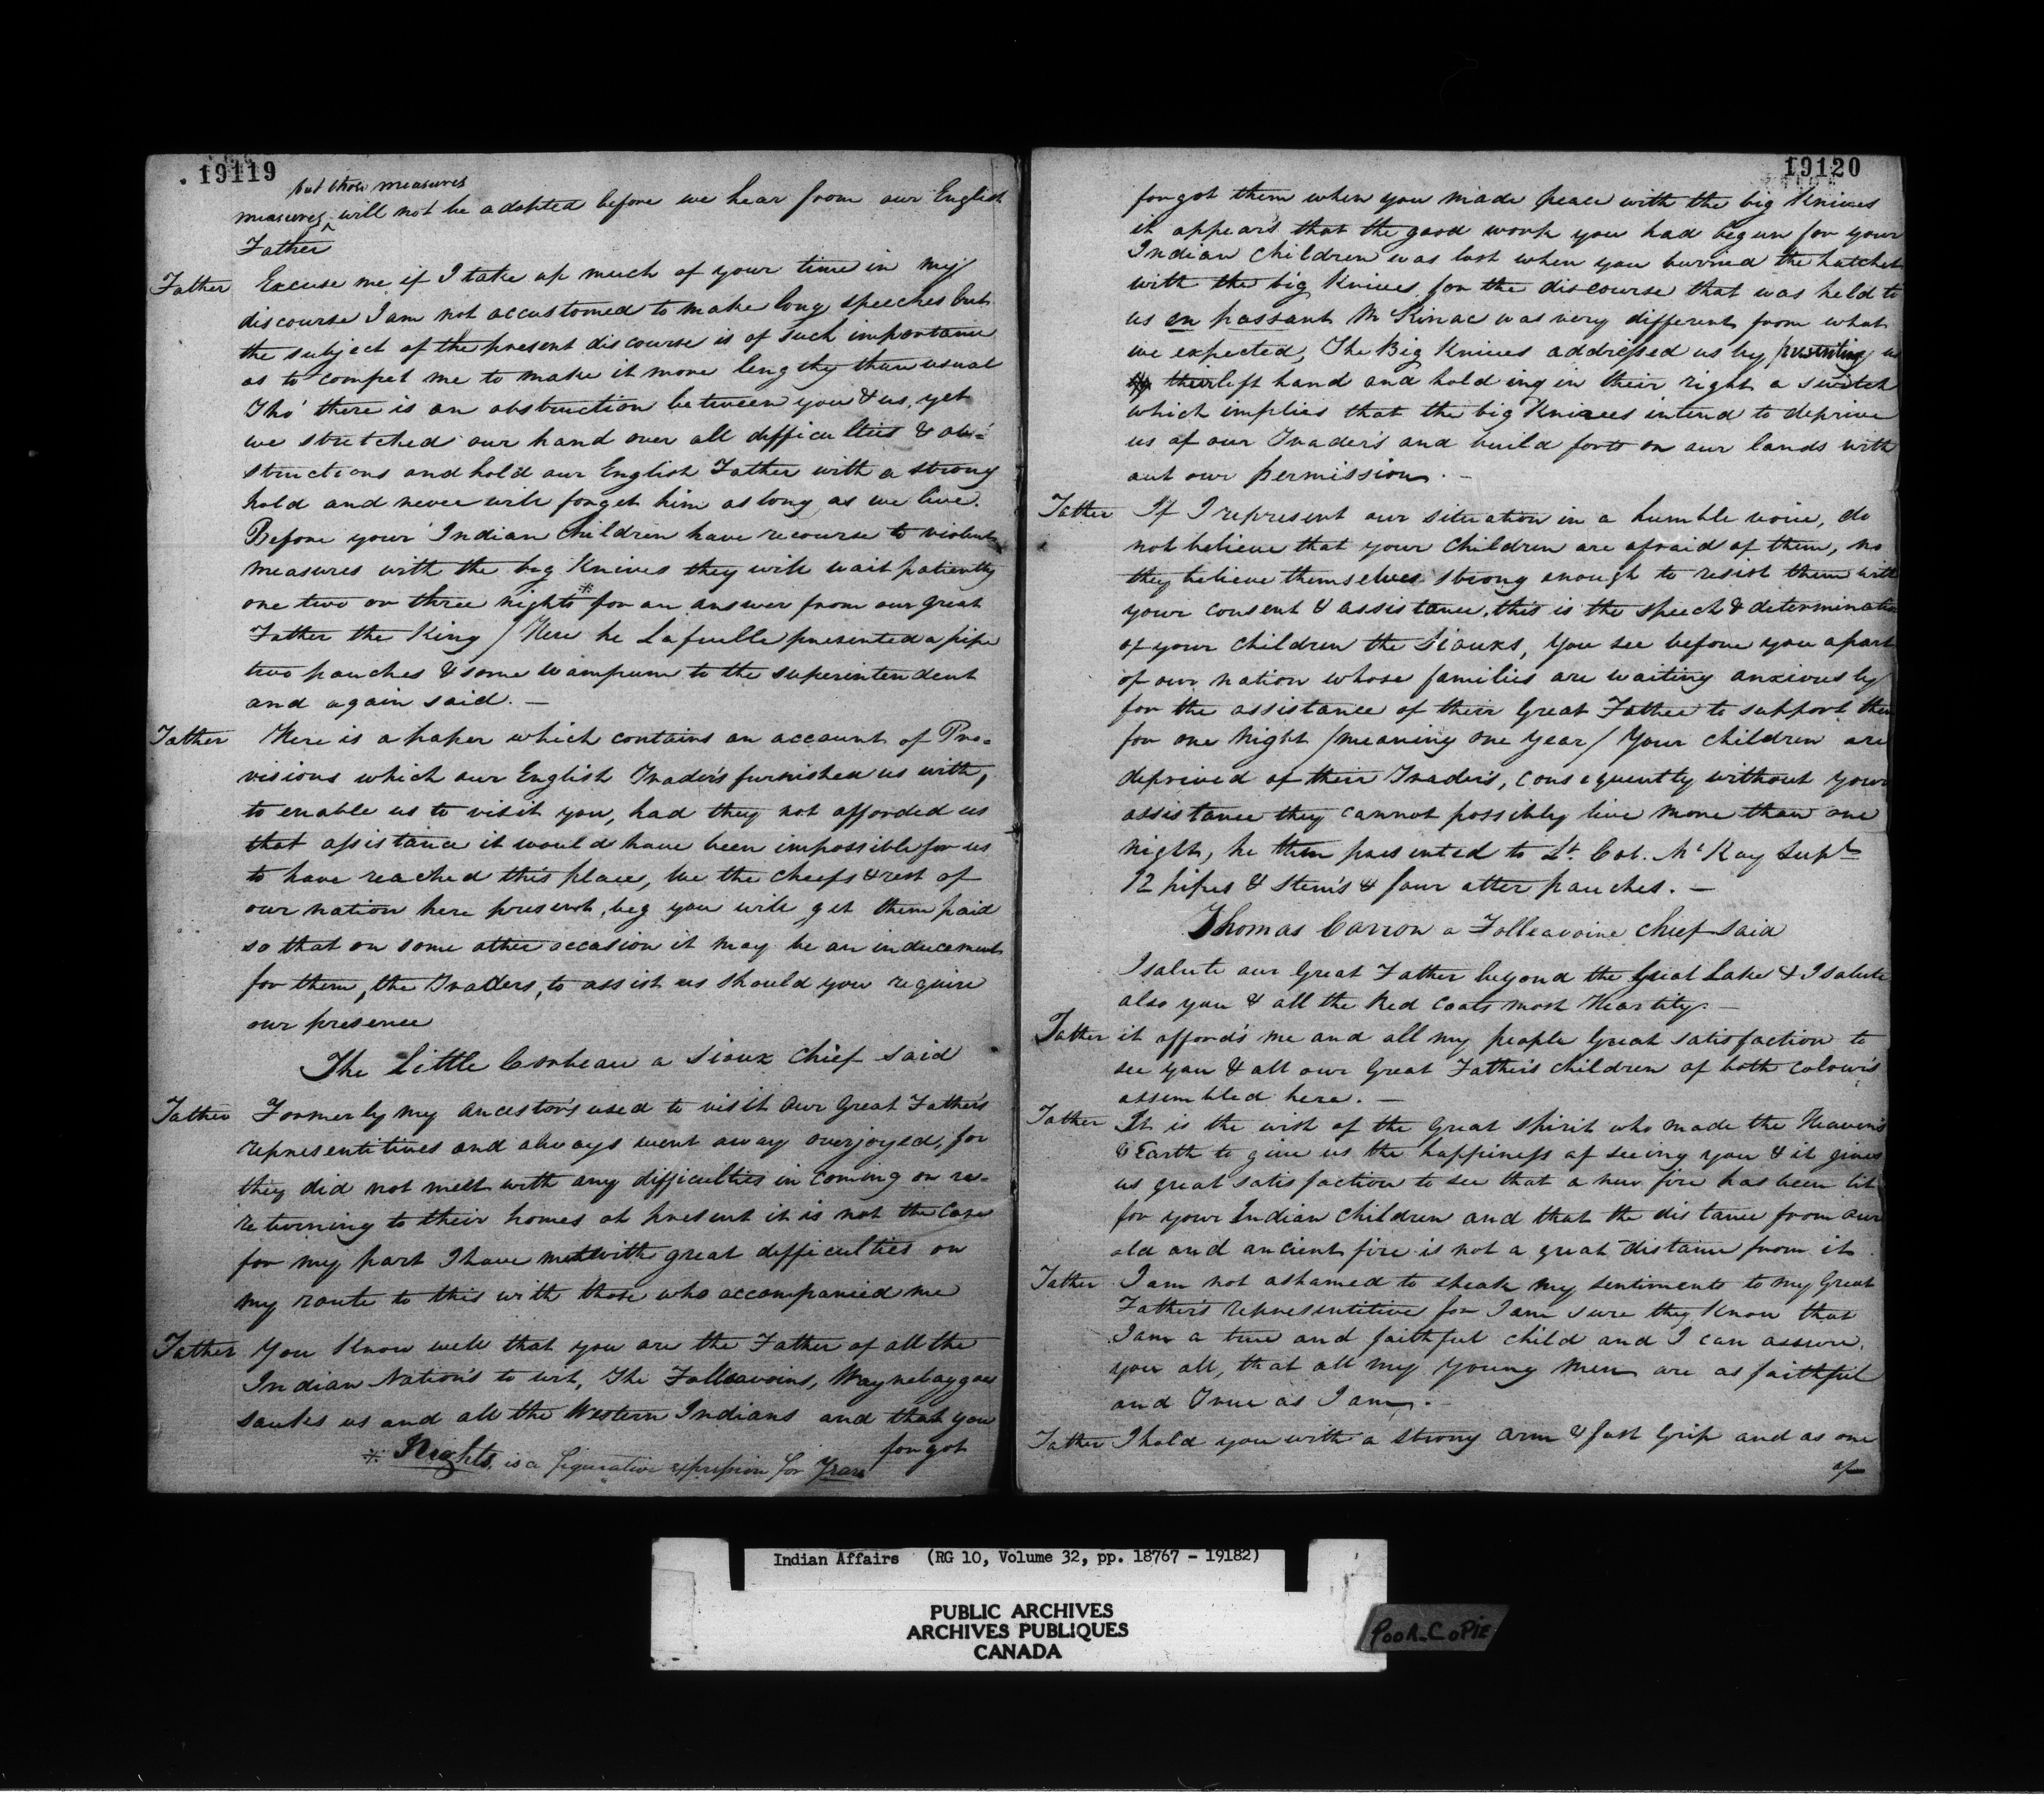 19119
but those measures
measures, will not be adopted before we hear from our English
Father
Father Excuse me if I take up much of your time in my
discourse I am not accustomed to make long speeches but
the subject of the present discourse is of such importance
as to compel me to make it more lengthy than usual
Tho' there is an obstruction between you & us, yet
we stretched our hand over all difficulties & ob=
structions and hold our English Father with a strong
hold and never will forget him as long as we live.
Before your Indian Children have recourse to violent
measures with the big Knives they will wait patiently
one two or three nights * for an answer from our great
Father the King / Here he Lafeulle presented a pipe
two pouches & some wampum to the superintendent
and again said. —
Father Here is a paper which contains an account of Pro=
visions which our English Trader's furnished us with,
to enable us to visit you, had they not afforded us
that assistance it would have been impossible for us
to have reached this place, We the Cheefs & rest of
our nation here present, beg you will get them paid
so that on some other occasion it may be an inducement
for them, the Traders, to assist us should you require
our presence
The Little Corbeau a Sioux Chief said
Father Formerly my ancestor's used to visit our Great Father's
representitives and always went away overjoyed, for
they did not meet with any difficulties in coming or re=
returning to their homes at present it is not the Case
for my part I have met with great difficulties on
my route to this with those who accompanied me
Father You know well that you are the Father of all the
Indian Nation's to wit, The Folleavoins, Waynebaggoes
Sauks us and all the Western Indians and that you
forgot
* Nights, is a figurative expression for Years
19120
forgot them when you made peace with the big Knives
it appear's that the good work you had begun for your
Indian Children was lost when you burried the hatchet
with the big Knives for the discourse that was held to
us en passant McKinac was very different from what
we expected, The Big Knives addressed us by presenting us
their left hand and holding in their right a switch
which implies that the big Knivees intend to deprive
us of our Trader's and build forts on our lands with
out our permission. —
Father If I represent our situation in a humble voice, do
not believe that your Children are afraid of them, no
they believe themselves strong enough to resist them with
your consent & assistance, this is the speech & determination
of your Children the Siouxs, You see before you a part
of our nation whose families are waiting anxiously
for the assistance of their Great Father to support them
for one Night / meaning one Year / Your Children are
deprived of their Trader's, consequently without your
assistance they cannot possibly live more than one
Night, he then presented to Lt. Col. McKay Supt
12 pipes & Stem's & four otter pouches. —
Thomas Carron a Folleavoine Chief said
I salute our Great Father beyond the Great Lake & I salute
also you & all the Red Coats most Heartily. —
Father it afford's me and all my people Great satisfaction to
see you & all our Great Father's Children of both Colour's
assembled here. —
Father It is the wish of the Great Spirit who made the Heavens
& Earth to give us the happiness of seeing you & it gives
us great satisfaction to see that a new fire has been lit
for your Indian Children and that the distance from our
old and ancient fire is not a great distance from it
Father I am not ashamed to speak my sentiments to my Great
Father's representitive for I am sure they Know that
I am a true and faithful child and I can assure
you all, that all my young men are as faithful
and True as I am. —
Father I hold you with a strong arm & fast Grip and as one
of
Indian Affairs (RG 10, Volume 32, pp. 18767 - 19182)
PUBLIC ARCHIVES
ARCHIVES PUBLIQUES
CANADA
POOR COPIE